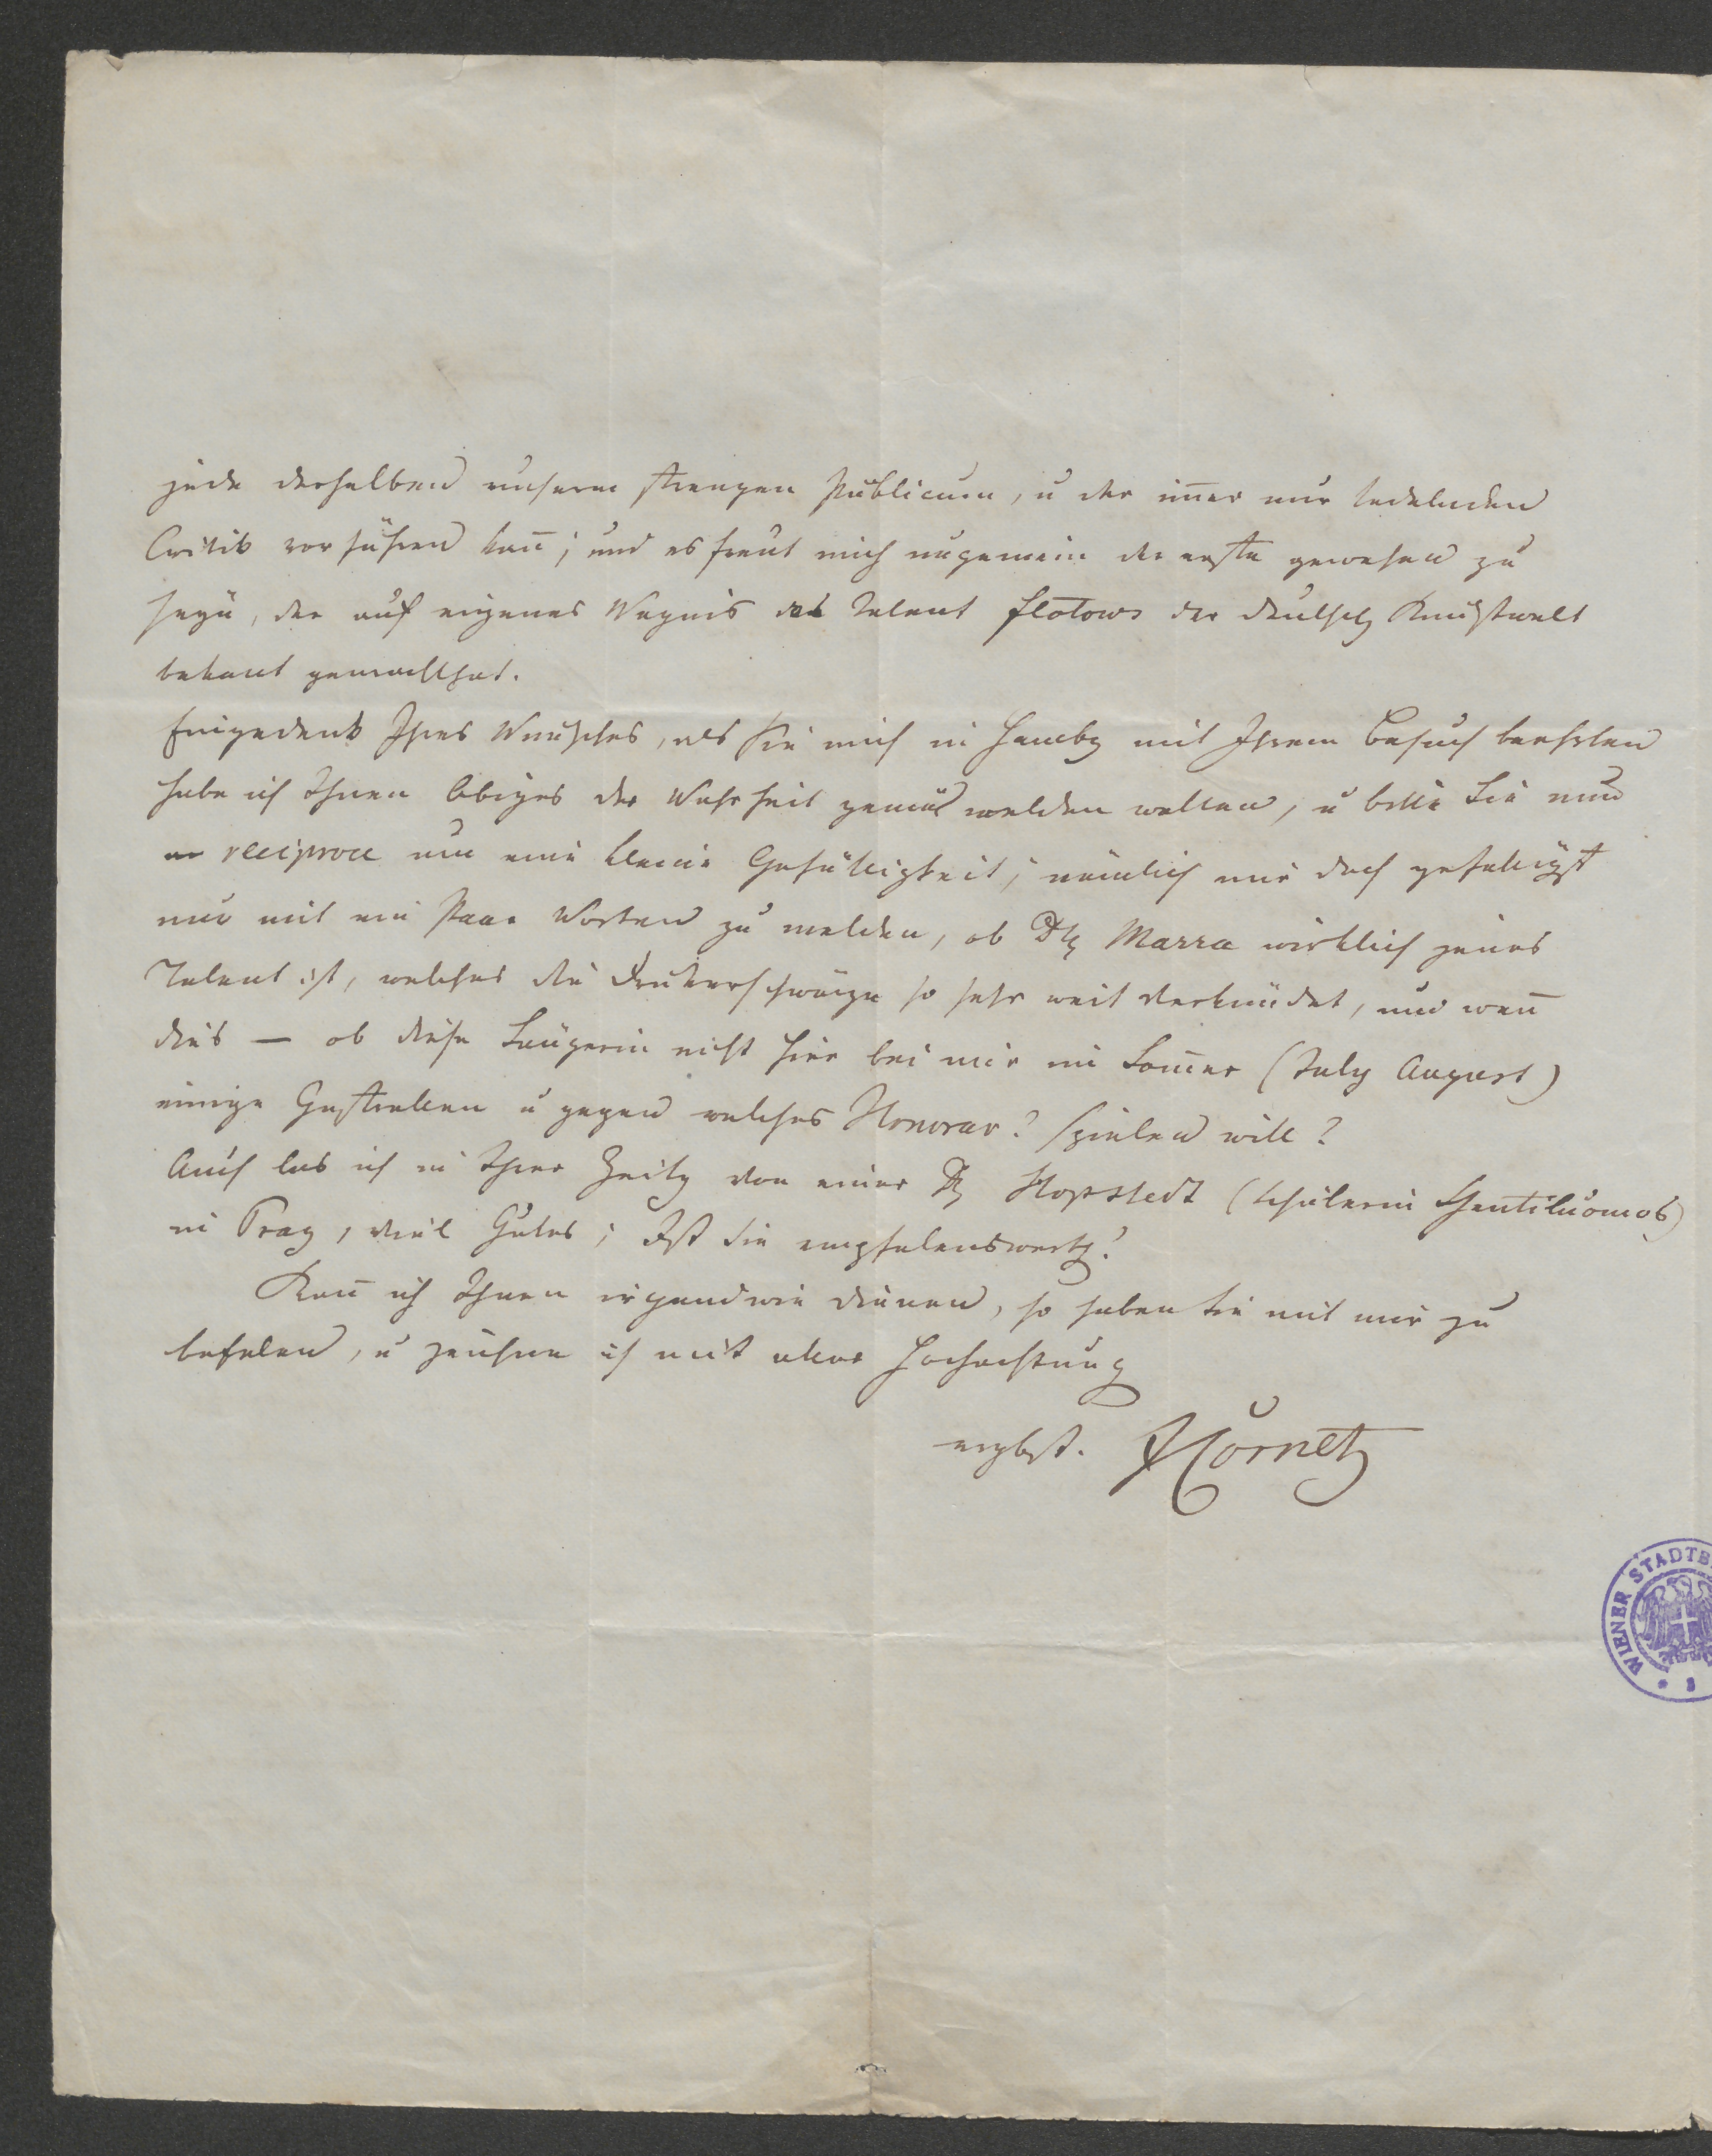 jede derselben unserem strengen Publicum, u der im̅er nur tadelnden
Critik vorführen kan̅; und es freut mich ungemein der erste gewesen zu
seyn, der auf eigenes Wagnis das Talent Flotows der deutsch Kunstwelt
bekant gemacht hat.
Eingedenk Ihres Wunsches, als Sie mich in Hambg mit Ihrem Besuch beehrten
habe ich Ihnen Obiges der Wahrheit gemäs melden wollen, u bitte Sie nun
reciproce um eine kleine Gefälligkeit; nämlich mir doch gefälligst
nur mit ein Paar Worten zu melden, ob Dlle Marra wirklich jenes
Talent ist, welches die Drukerschwärze so sehr weit verkündet, und wen̅
dies — ob diese Sängerin nicht hier bei mir im Som̅er (July August)
einige Gastrollen u gegen welches Honorar? spielen will?
Auch las ich in Ihrer Zeitg von einer Dlle Stopstedt (Schülerin Gentiluomos)
in Prag, viel Gutes; Ist sie empfelenswerth?
Kan̅ ich Ihnen irgendwie dienen, so haben Sie mit mir zu
befelen, u zeichne ich mit aller Hochachtung
ergbst. JCornet
WIENER STADTB